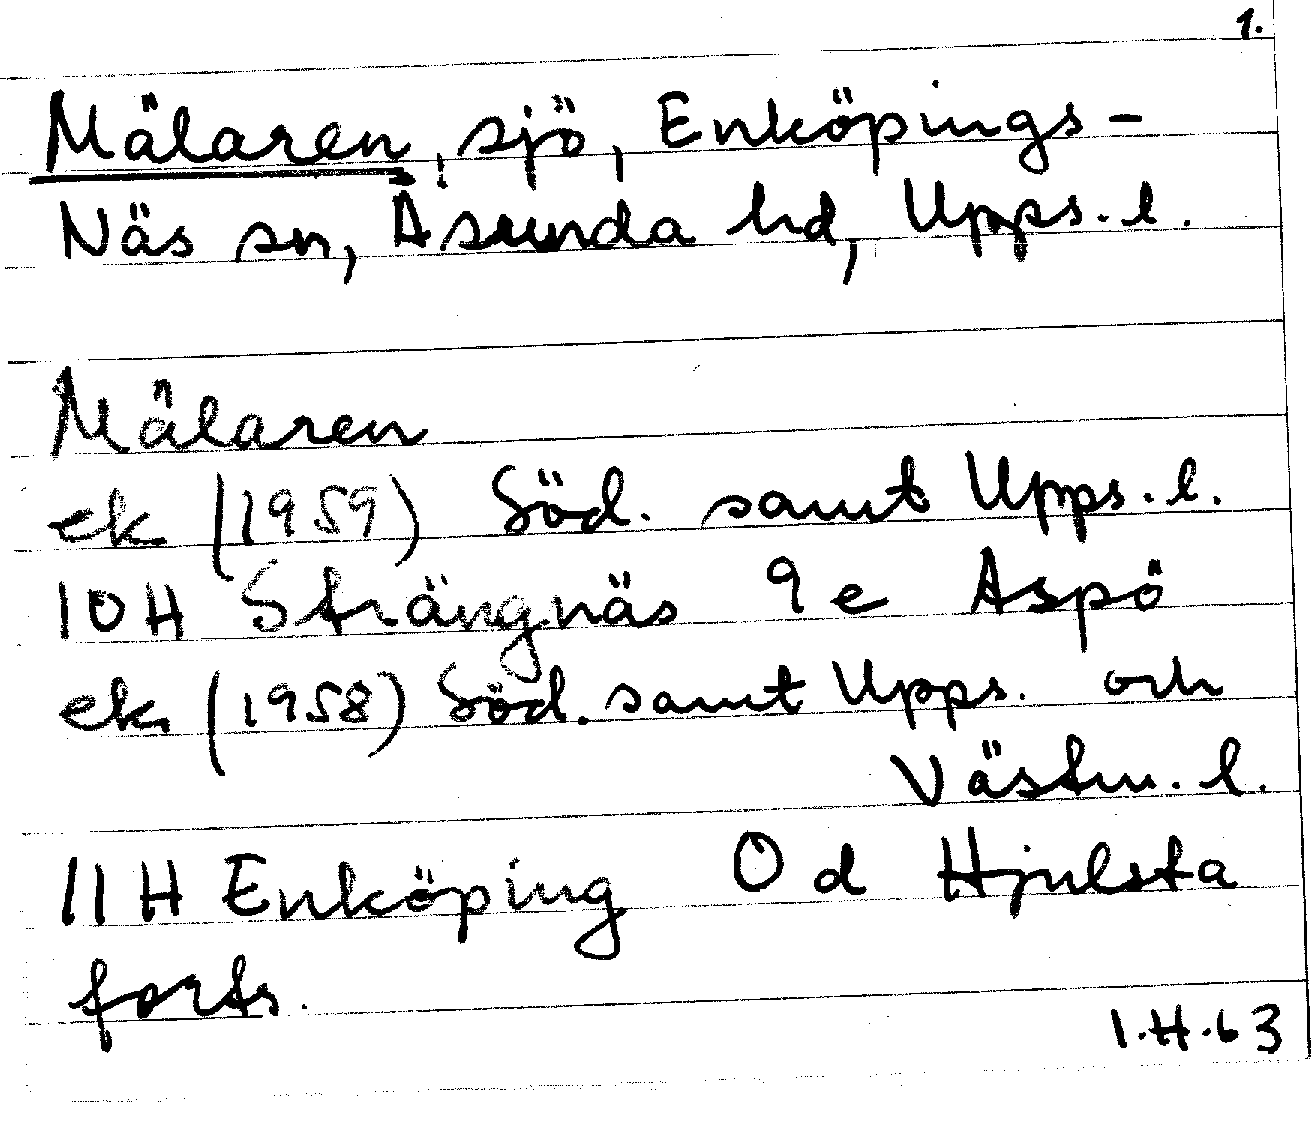 1.
Mälaren, sjö, Enköpings-
Näs sn, Åsunda hd, Upps. l.
Mälaren
ek (1959) Söd. samt Upps. l.
10H Strängnäs 9e Aspö
ek (1958) Söd. samt Upps. och
Västm. l.
11H Enköping 0d Hjulsta
forts.
I.H.63